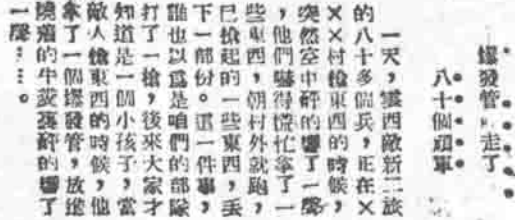 爆發管走了
八十個頑軍
一天，雲西敵新二旅
的八十多個兵，正在×
×村搶東西的時候，
突然空中砰的響了一聲
，他們嚇得慌忙拿了一
些東西，朝村外就跑，
已搶起的一些東西，丟
下一部份。這一件事，
誰也以爲是咱們的部隊
打了一槍，後來大家才
知道是一個小孩子，當
敵人搶東西的時候，他
拿了一個爆發管，放進
的牛裏砰的響了
一聲……。